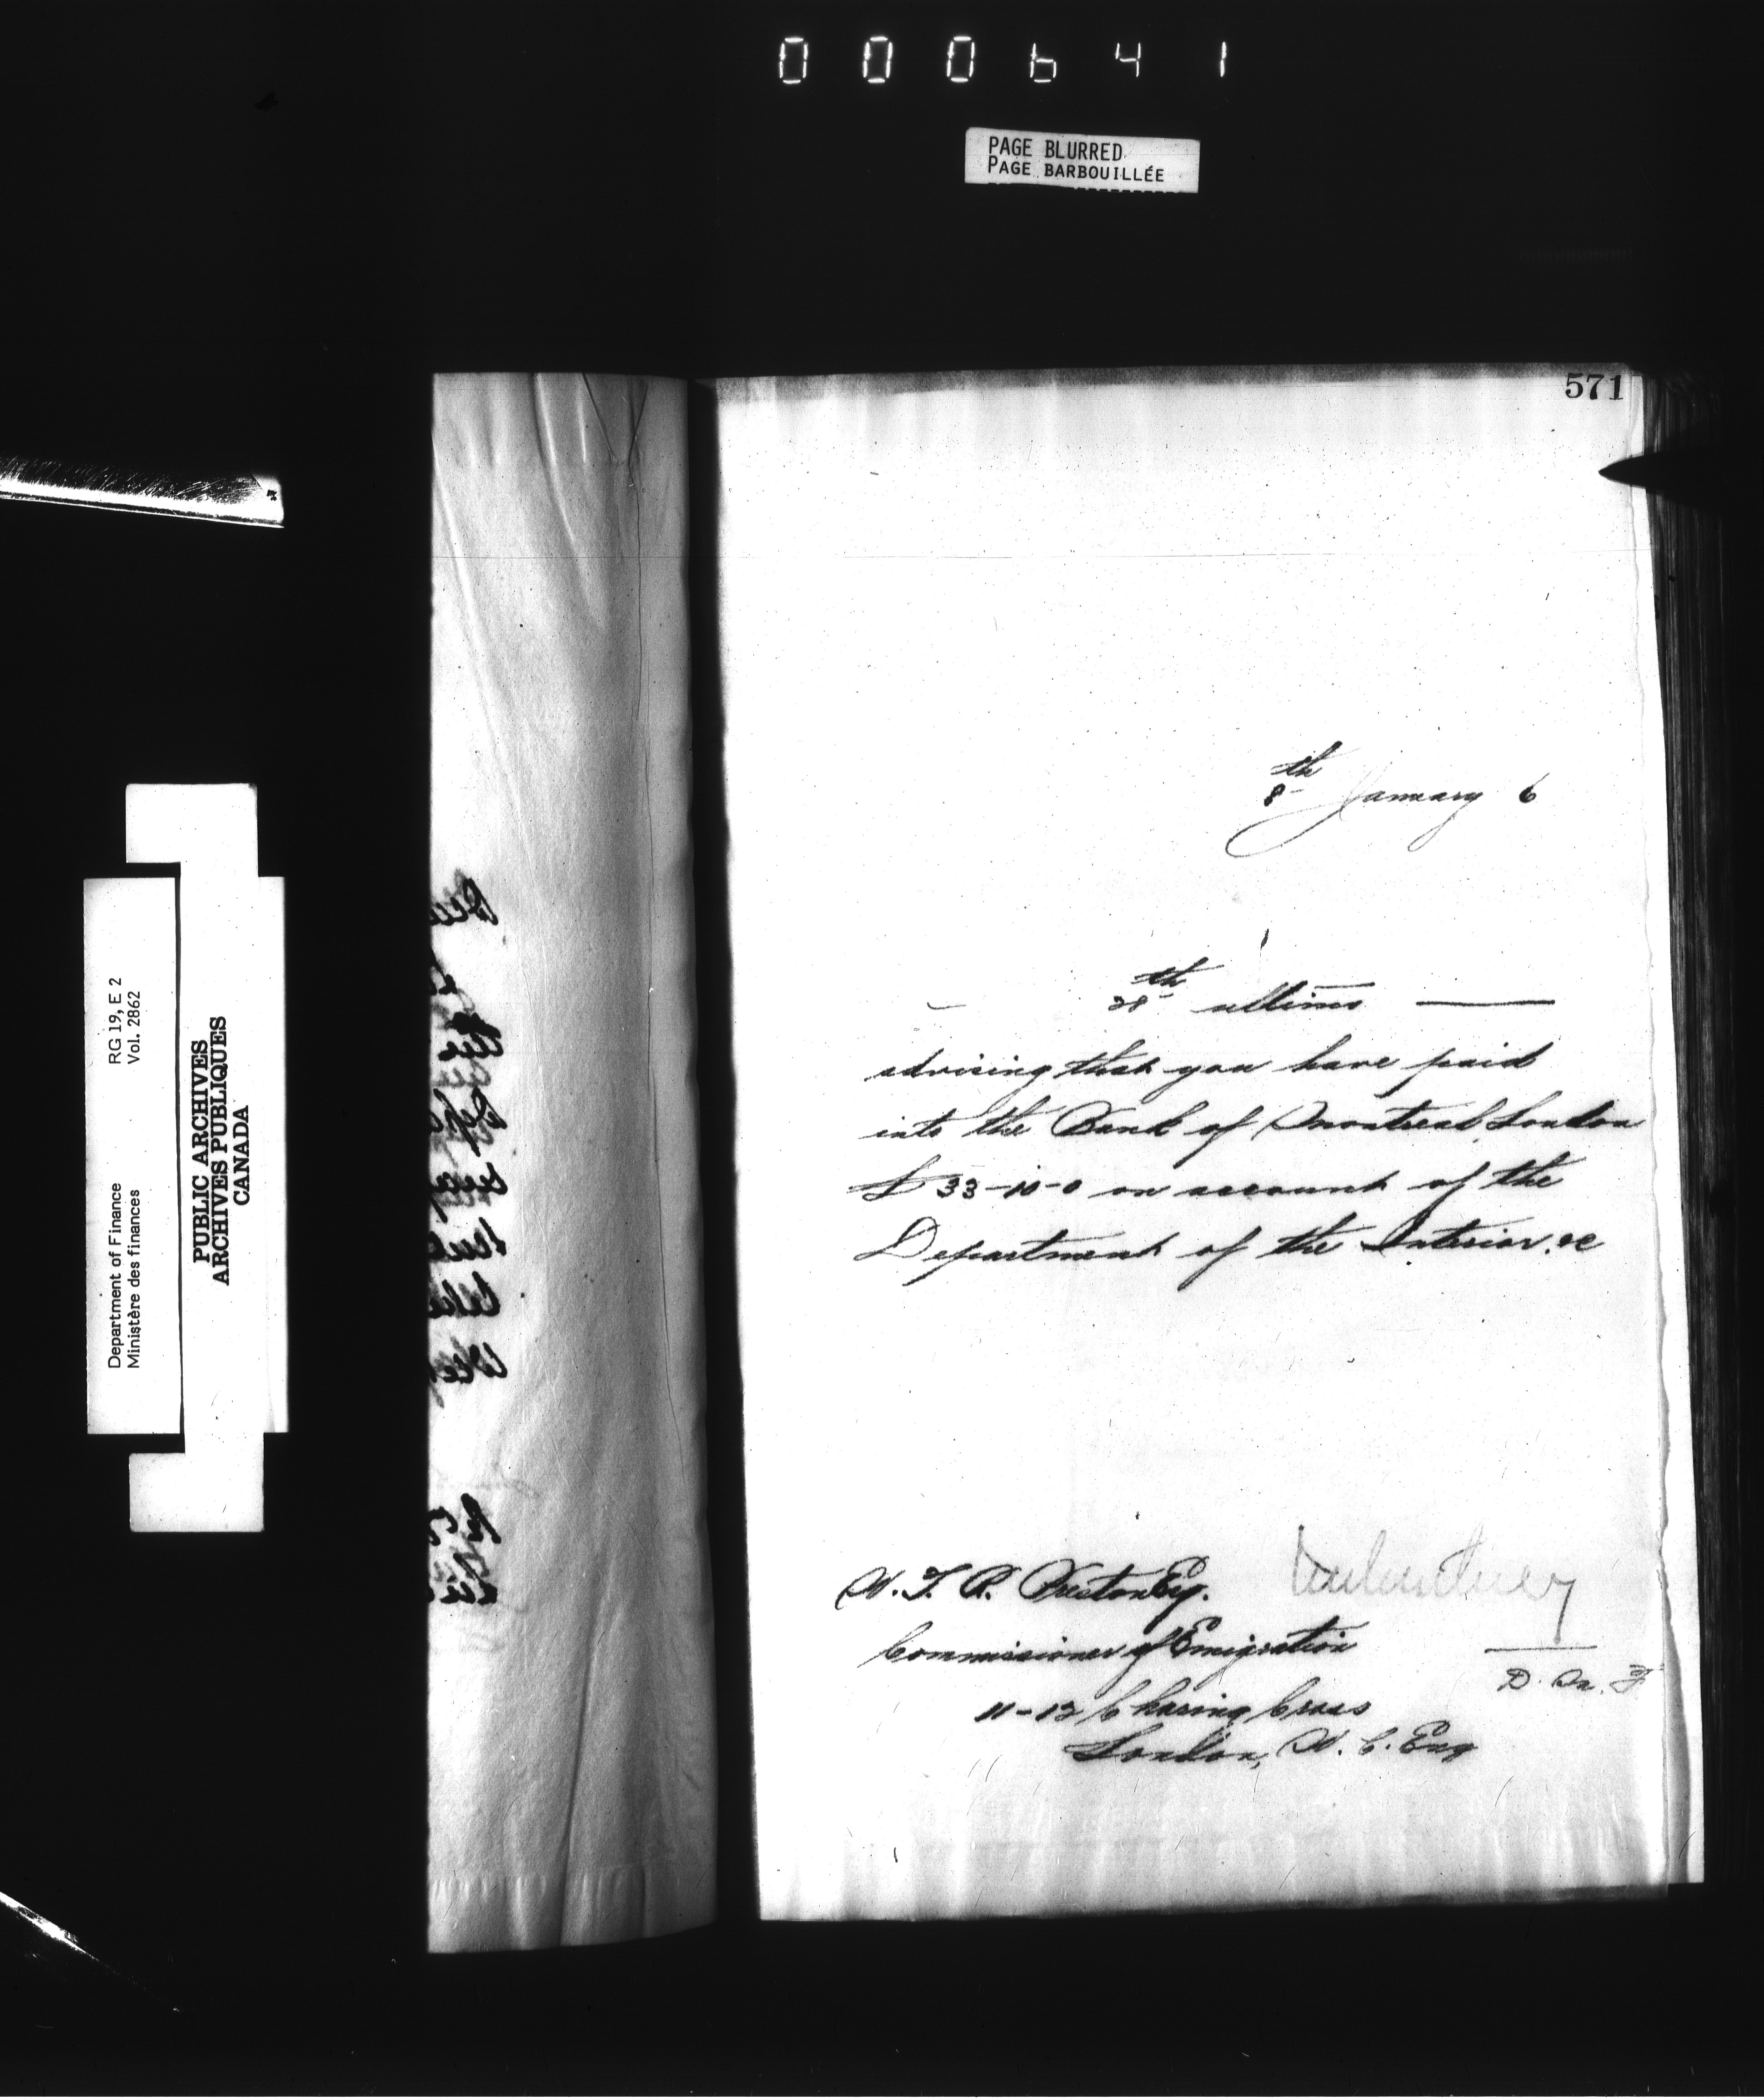 000641
PAGE BLURRED
PAGE BARBOUILLÉE
571
Department of Finance RG 19, E 2
Ministère des finances Vol. 2862
PUBLIC ARCHIVES
ARCHIVES PUBLIQUES
CANADA
8th January 6
28th ultimo
advising that you have paid
into the Bank of Montreal, London
£33-10-0 on account of the
Department of the Interior. &c
W. T. R. Preston Esq.
Commissioner of Emigration
D. M. F
11-12 Charing Cross
London, W. C. Eng